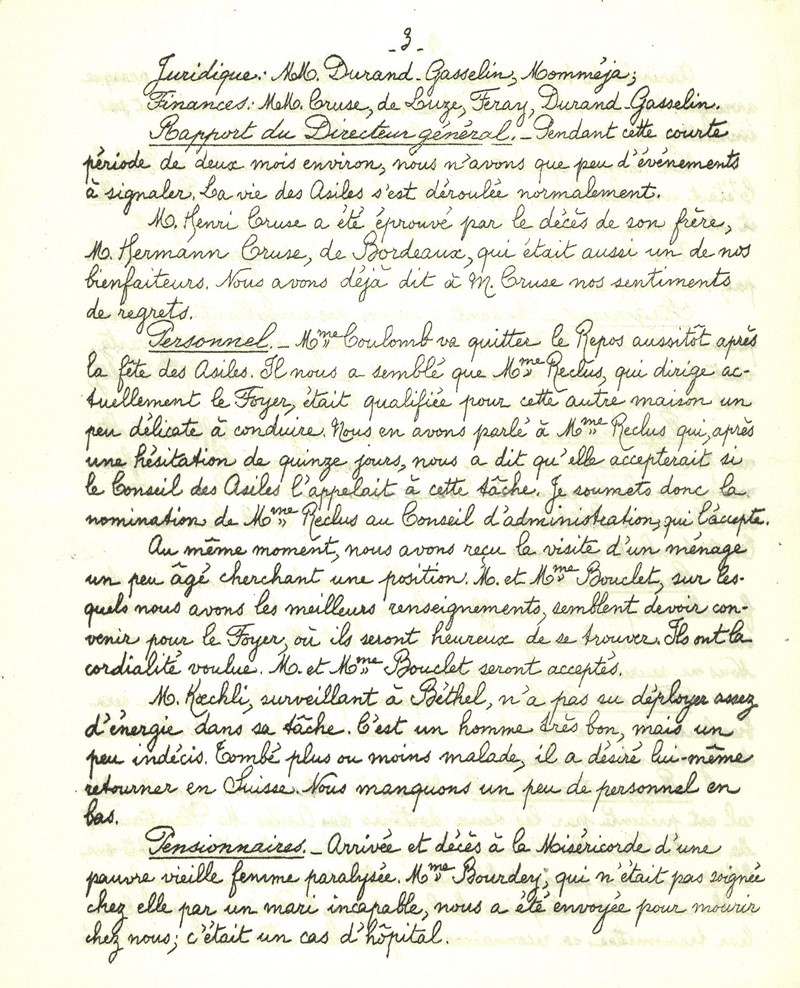 - 3 -
Juridique : MM. Durand-Gasselin, Momméja ;
Finances : MM. Cruse, de Luze, Feray, Durand-Gasselin.
Rapport du Directeur général. _ Pendant cette courte
période de deux mois environ, nous n'avons que peu d'événements
à signaler. La vie des Asiles s'est déroulée normalement.
M. Henri Cruse a été éprouvé par le décès de son frère,
M. Hermann Cruse, de Bordeaux, qui était aussi un de nos
bienfaiteurs. Nous avons déjà dit à M. Cruse nos sentiments
de regrets.
Personnel. _ Mme Coulomb va quitter le Repos aussitôt après
la fête des Asiles. Il nous a semblé que Mme Reclus, qui dirige ac-
tuellement le Foyer, était qualifiée pour cette autre maison un
peu délicate à conduire. Nous en avons parlé à Mme Reclus qui, après
une hésitation de quinze jours, nous a dit qu'elle accepterait si
le Conseil des Asiles l'appelait à cette tâche. Je soumets donc la
nomination de Mme Reclus au Conseil d'administration, qui l'accepte.
Au même moment, nous avons reçu la visite d'un ménage
un peu âgé cherchant une position. M. et Mme Bouclet, sur les-
quels nous avons les meilleurs renseignements, semblent devoir con-
venir pour le Foyer, où ils seront heureux de se trouver. Ils ont la
cordialité voulue. M. et Mme Bouclet seront acceptés.
M. Kœchli, surveillant à Béthel, n'a pas su déployer assez
d'énergie dans sa tâche. C'est un homme très bon, mais un
peu indécis. Tombé plus ou moins malade, il a désiré lui-même
retourner en Suisse. Nous manquons un peu de personnel en
bas.
Pensionnaires. _ Arrivée et décès à la Miséricorde d'une
pauvre vieille femme paralysée. Mme Bourdey, qui n'était pas soignée
chez elle par un mari incapable, nous a été envoyée pour mourir
chez nous ; c'était un cas d'hôpital.